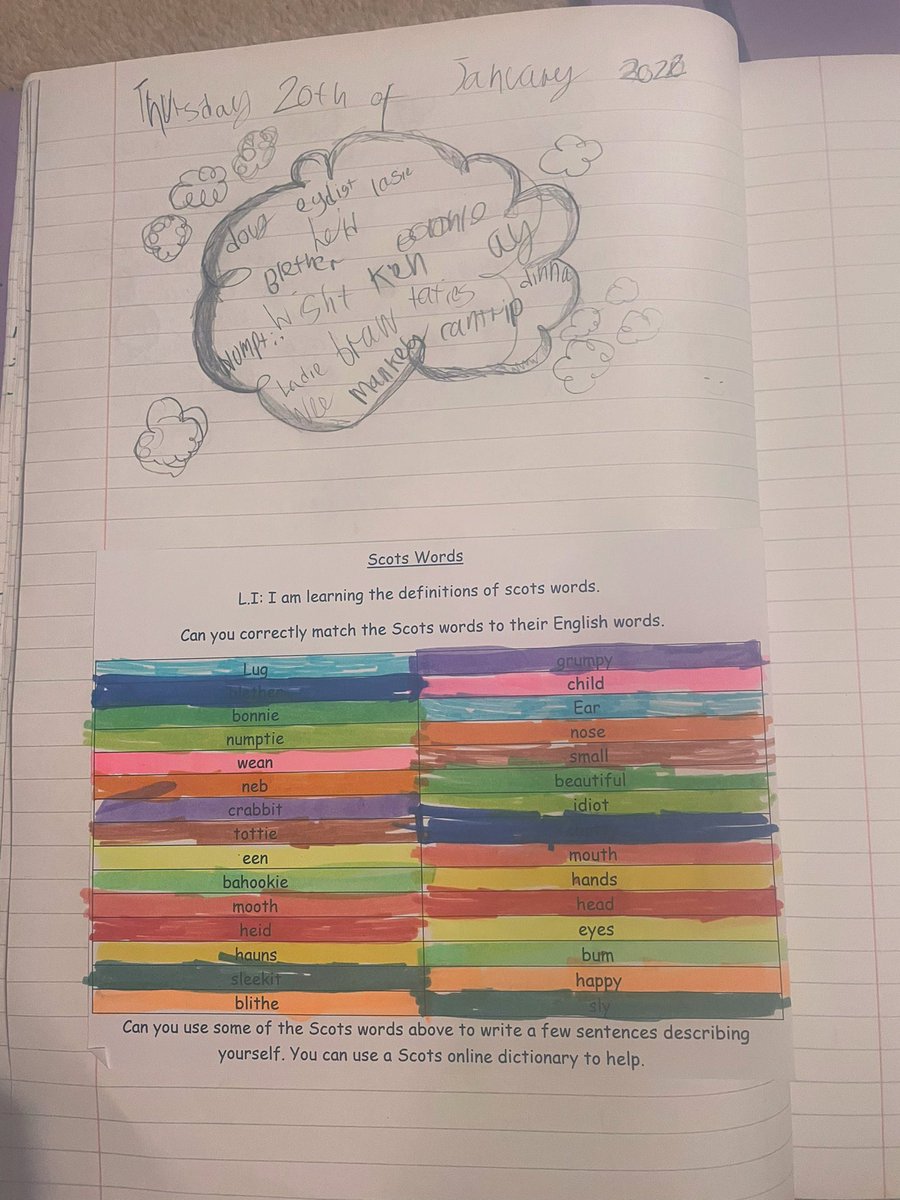 Thursday 20th of January 2022
eydist lasie
held
Blether
Ken ay
wisht dinna
braw taties
Ladie mankey rantrip
wee
Scots Words
L.I: I am learning the definitions of scots words.
Can you correctly match the Scots words to their English words.
Lug grumpy
blether child
bonnie Ear
numptie nose
wean small
neb beautiful
crabbit idiot
tottie
een mouth
bahookie hands
mooth head
heid eyes
hauns bum
sleekit happy
blithe sly
Can you use some of the Scots words above to write a few sentences describing
yourself. You can use a Scots online dictionary to help.